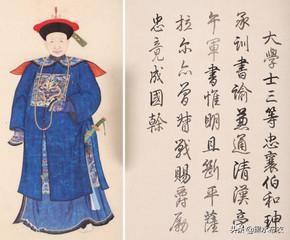 大學士三等忠襄伯和珅
承訓書諭兼通清漢旁
午軍書惟明且斷平薩
拉尔亦曾督戰賜爵勵
忠竟成國幹
头条